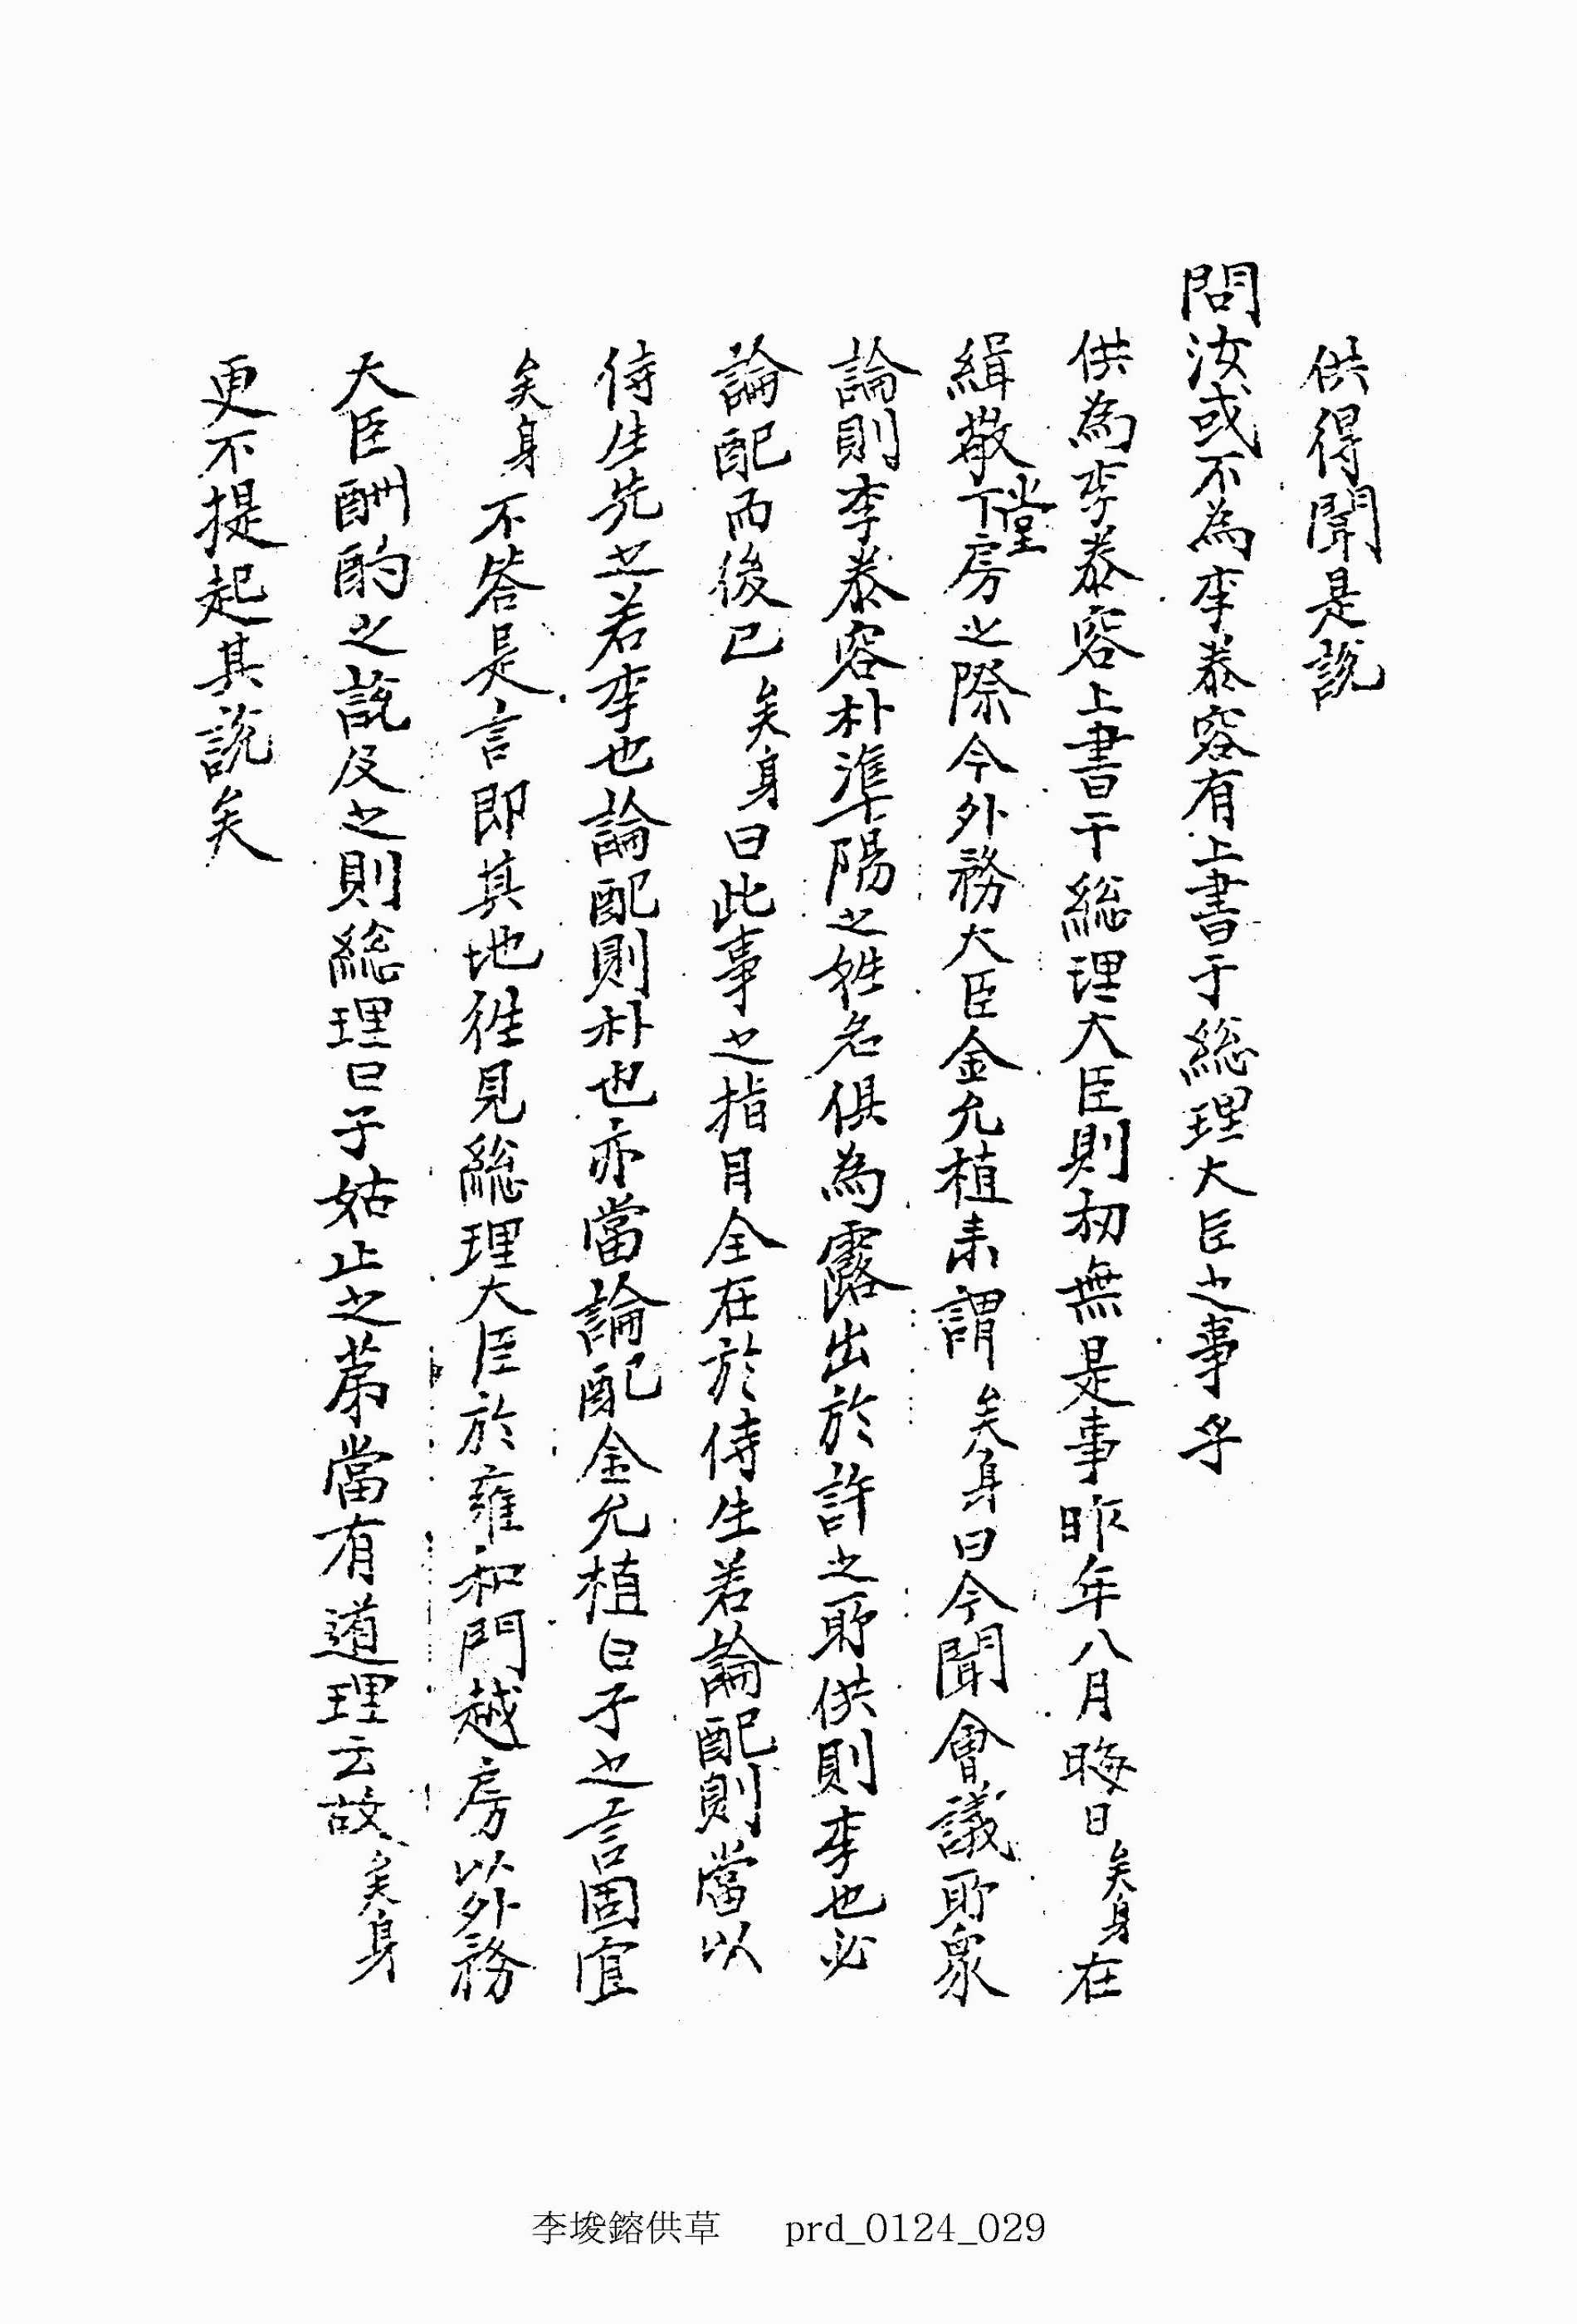 供得聞是說
問汝或不為李泰容有上書于総理大臣之事乎
供為李泰容上書于総理大臣則初無是事昨年八月晦日矣身在
緝敬堂下房之際今外務大臣金允植来謂矣身曰今聞會議所衆
論則李泰容朴準陽之姓名俱為露出於許之所供則李也必
論配而後已矣身曰此事之指目全在於侍生若論配則當以
侍生先之若李也論配則朴也亦當論配金允植曰子之言固宜
矣身不答是言即其地徃見総理大臣於雍和門越房以外務
大臣酬酌之說及之則総理曰子姑止之苐當有道理云故矣身
更不提起其說矣
李埈鎔供草 prd_0124_029